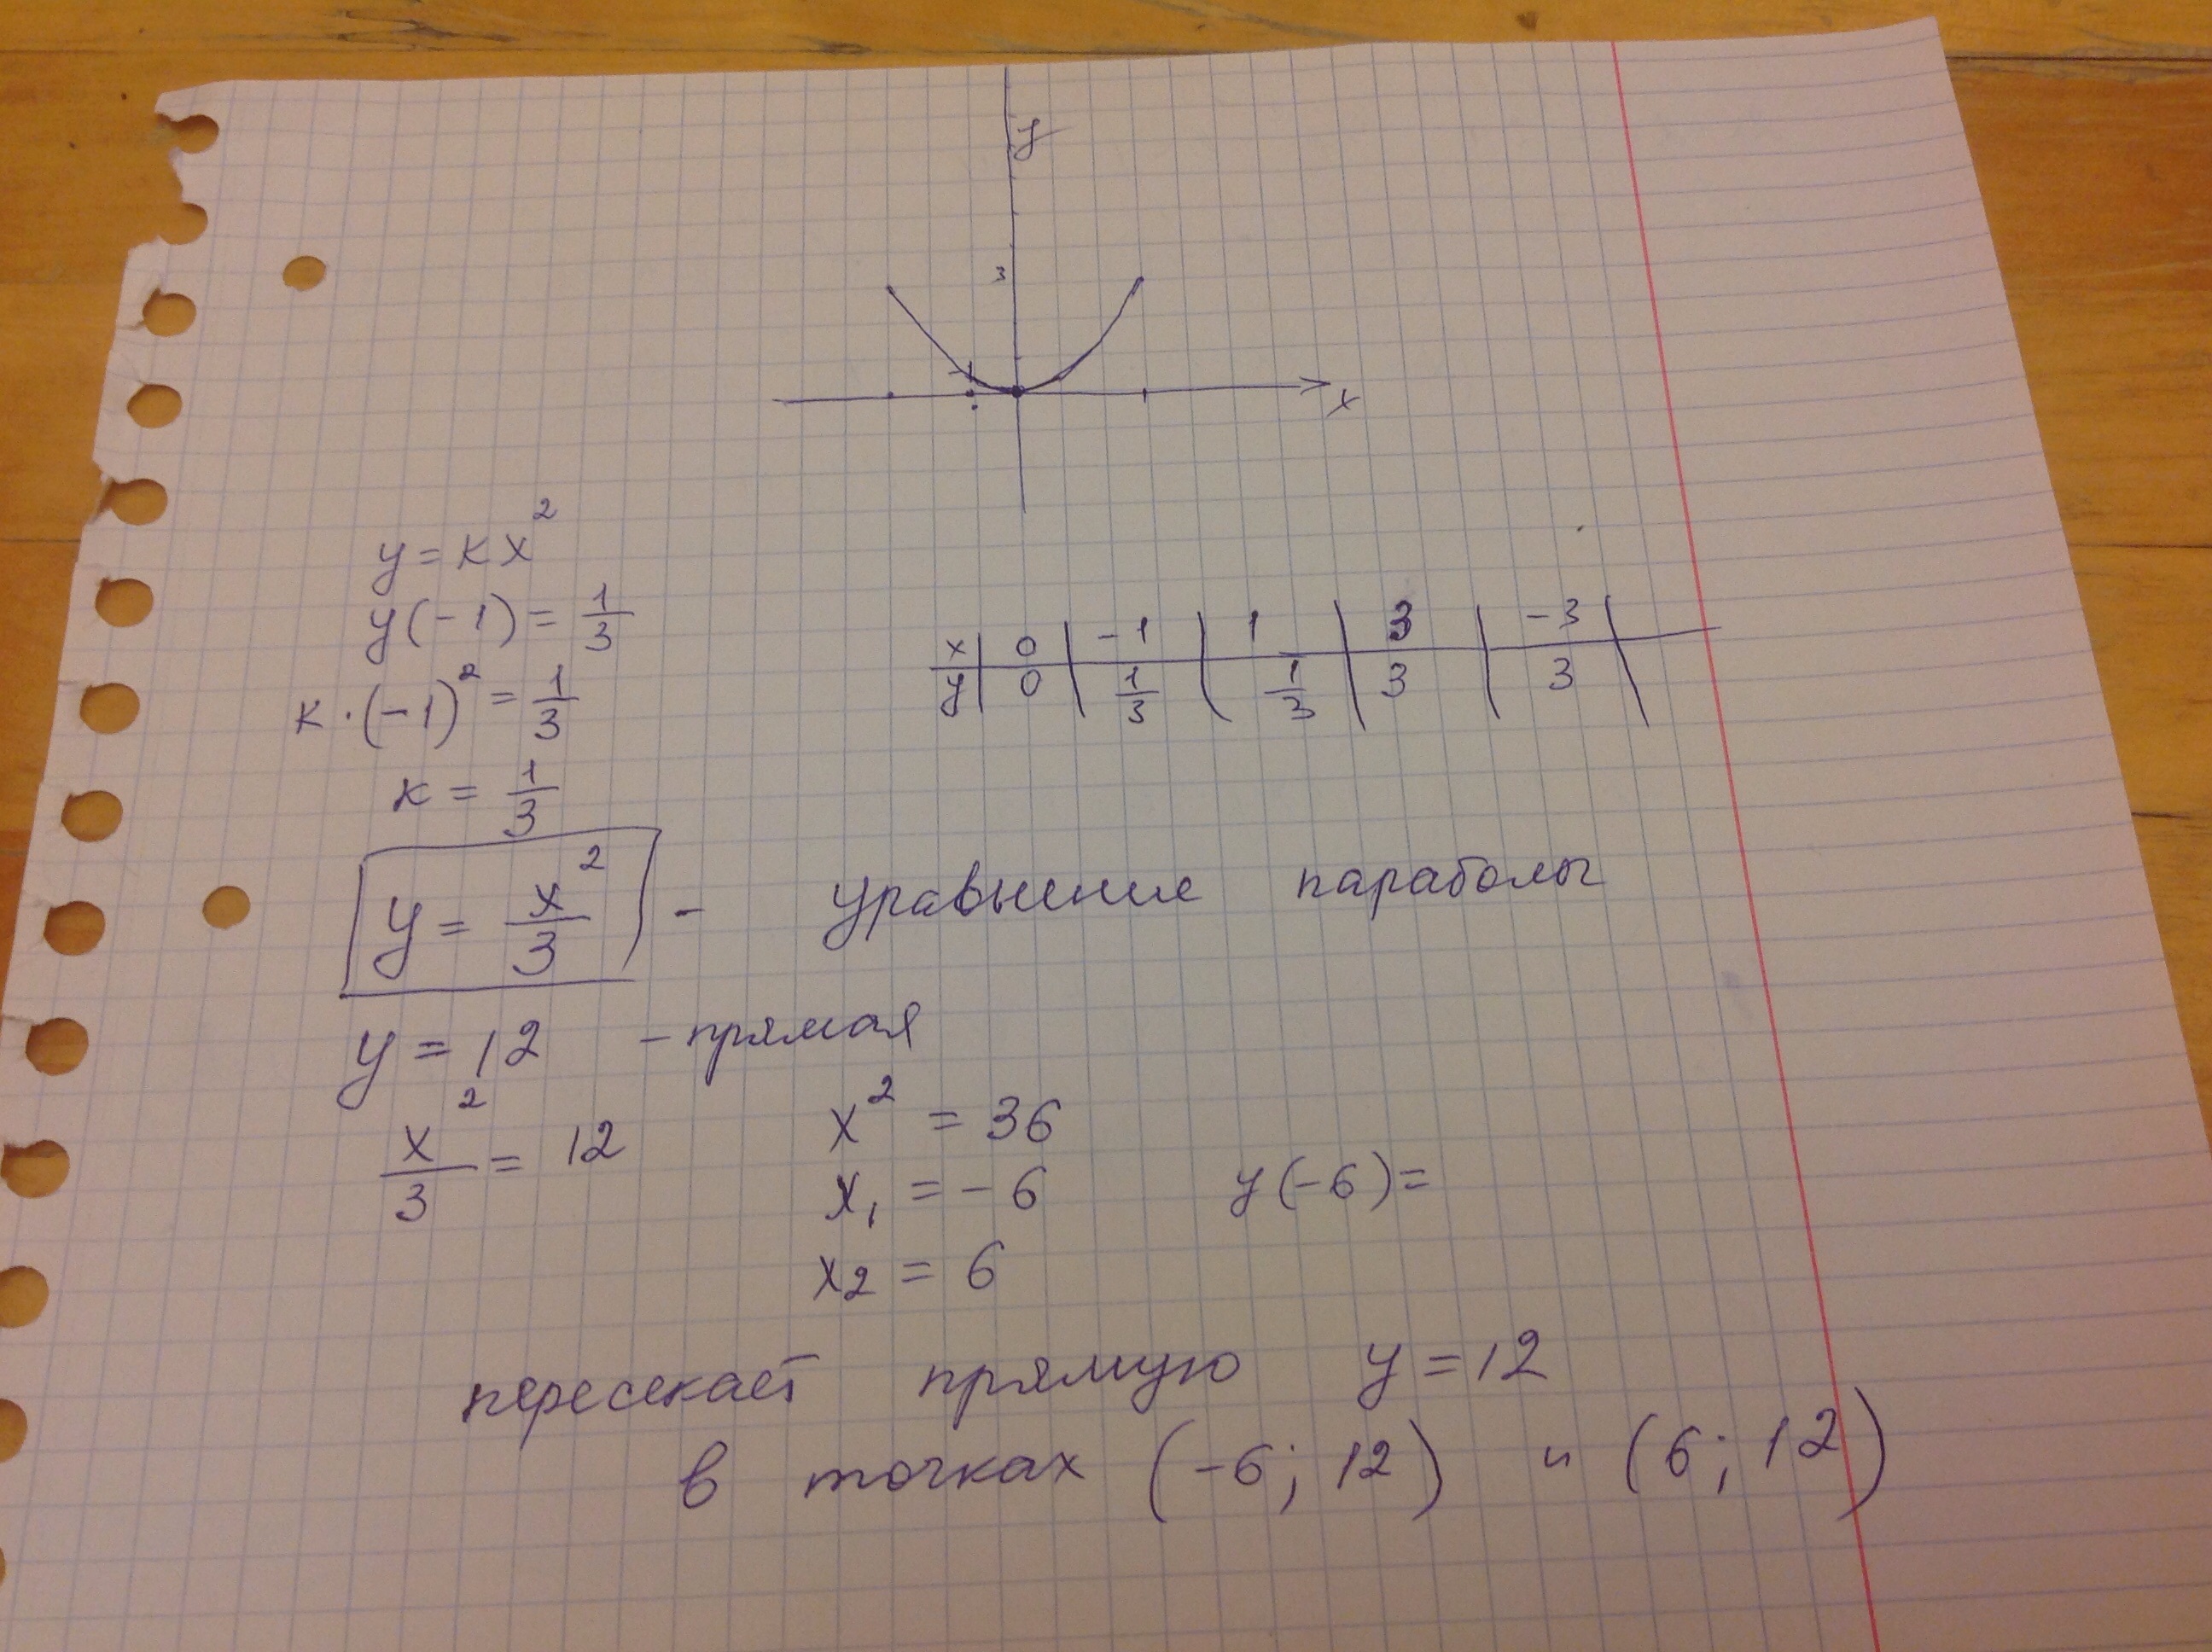 y
3
-1
x
y = kx²
y(-1) = 1/3
k · (-1)² = 1/3
k = 1/3
x | 0 | -1 | 1 | 3 | -3 |
y | 0 | 1/3 | 1/3 | 3 | 3 |
y = x²/3 - уравнение параболы
y = 12 - прямая
x²/3 = 12
x² = 36
x₁ = -6
y(-6) =
x2 = 6
пересекает прямую y = 12
в точках (-6; 12) и (6; 12)